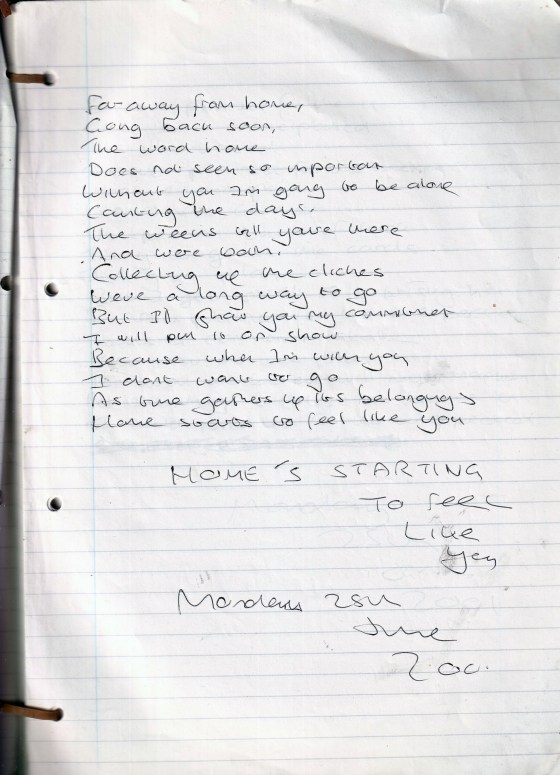 Far away from home,
Going back soon,
The word home
Does not seem so important
Without you I'm going to be alone
Counting the days.
The weeks till you're there
And were both.
Collecting up the cliches
Weve a long way to go
But I'll show you my commitment
I will put it on show
Because when I'm with you
I dont want to go
As time gathers up its belongings
Home starts to feel like you
HOME'S STARTING
TO FEEL
LIKE
YOU
25th
June